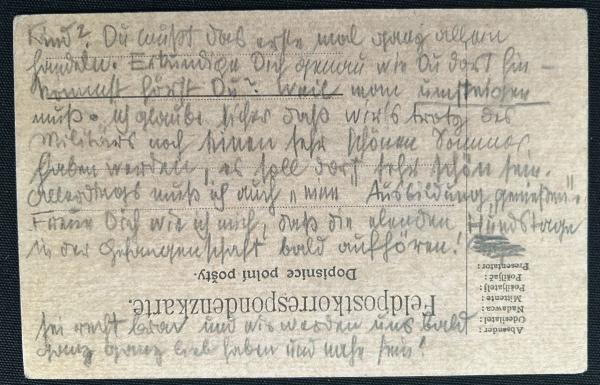 Kind? Du mußt das erste mal ganz allein
handeln. Erkundige Dich genau wie Du dort hin-
kommst hörst Du? Weil man umsteigen
muß. ich glaube sicher daß wir's trotz des
Militärs noch einen sehr schönen Sommer
haben werden, es soll dort sehr schön sein.
Allerdings muß ich auch „ Ausbildung genießen".
Freue Dich wie ich mich, daß die elenden Hundstage
in der Gefangenschaft bald aufhören!
Presentator:
Pošiljač:
Pošiljatelj:
Mittente:
Nadawca:
Odesilatel:
Absender:
Dopisnice polni pošty.
Feldpostkorrespondenzkarte.
sei recht brav und wir werden uns bald
ganz ganz lieb haben und nahe sein!